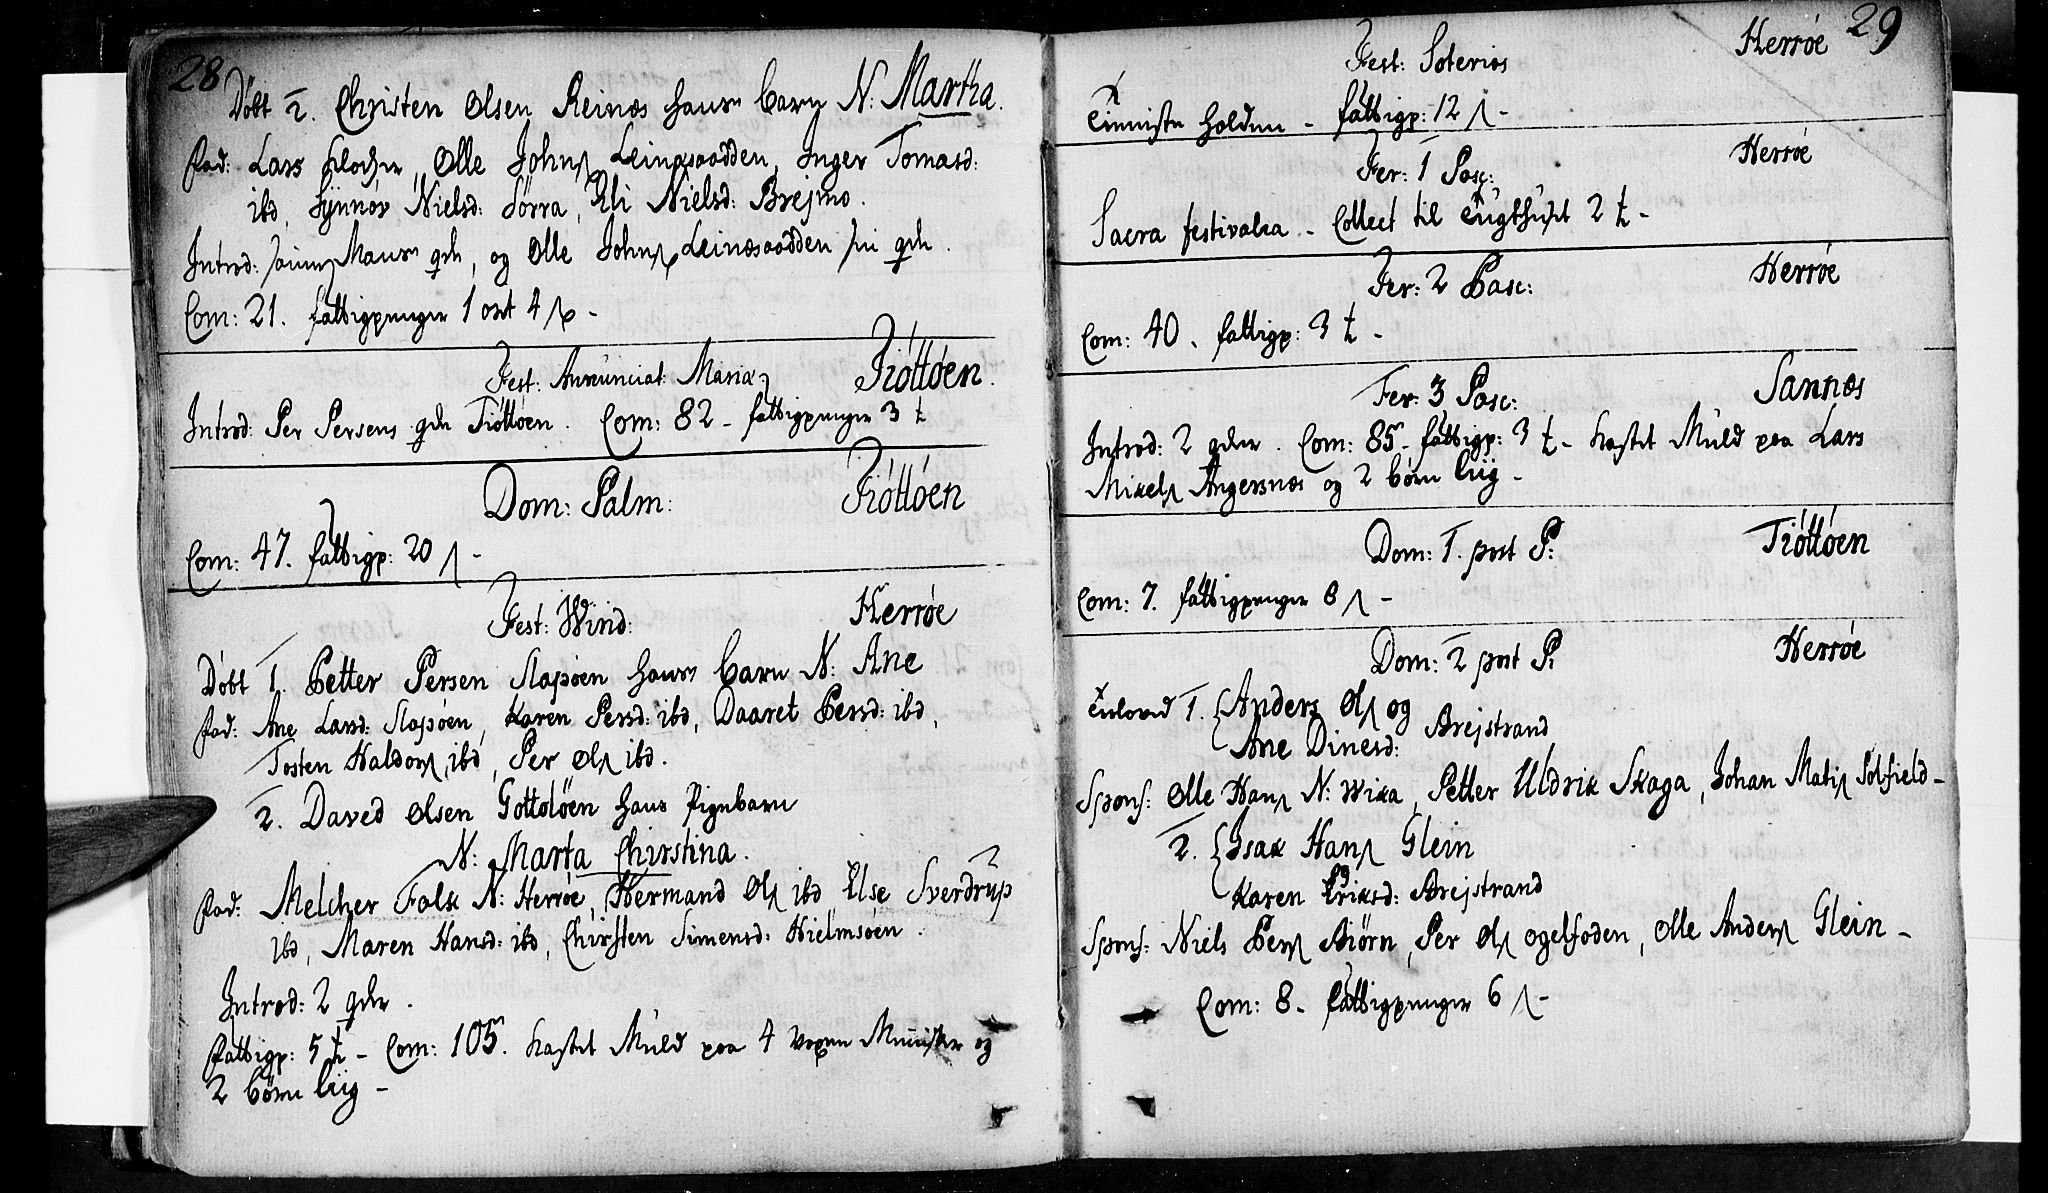 28
Döbt 2. Christen Olsen Reinæs hans barn N: Martha.
fad: Lars Olle Johnss Leinæsoodden, Inger Tomasd:
ibd, Synnöv Nielsd: Sörra, Eli Nielsd: Brejmo.
Introd: samme Mans qde, og Olle Johnss Leinæsoodden sin qde.
Com: 21. fattigpenger 1 ort 4 ß -
Fest: Annunciat: Mariæ Tiöttöen.
Introd: Per Persens qde Tiöttöen. Com: 82 - fattigpenger 3
Dom: Palm: Tiöttöen
Com: 47. fattigp: 20 ß -
Fest: Wird: Herröe
Döbt 1. Petter Persen Slapöen hans barn N: Ane
fad: Ane Larsd: Slapöen, Karen Persd: ibd, Daaret Persd: ibd,
Tosten Haldorss ibd, Per Olss ibd.
2. Daved Olsen Gottolöen hans Pigebarn
N: Marta Chirstina.
fad: Melcher Falk N: Herröe, Hermand Olss ibd, Else Sverdrup
ibd, Maren Hansd: ibd, Chirsten Simensd: Hielmsöen.
Introd: 2 qder.
fattigp: 5 - Com: 105. kastet Muld paa 4 voxne Mennisker og
2 börn liig -
29
Fest: Soterios Herröe
Tienniste holden - fattigp: 12 ß -
Fer: 1 Pasc: Herröe
Sacra festivalia - Collect til tugthuset 2 -
Fer: 2 Pasc: Herröe
Com: 40. fattigp: 3 -
Fer: 3 Pasc: Sannæs
Introd: 2 qder. Com: 85 - fattigp: 3 - kastet Muld paa Lars
Mikelss Angersnæs og 2 börn liig -
Dom: 1. post P: Tiöttöen
Com: 7. fattigpenger 8 ß -
Dom: 2 post P: Herröe
Trolovd 1. Anders Olss og
Ane Dinesd: Brejstrand
Spons: Olle Hanss N: Wika, Petter Uldrik Skaga, Johan Matiss Solfield -
2. Isak Hanss Glein
og
Karen Eriksd: Brejstrand
Spons: Niels Perss Biörn, Per Olss ogelfoden, Olle Anderss Glein -
Com: 8 - fattigpenger 6 ß -